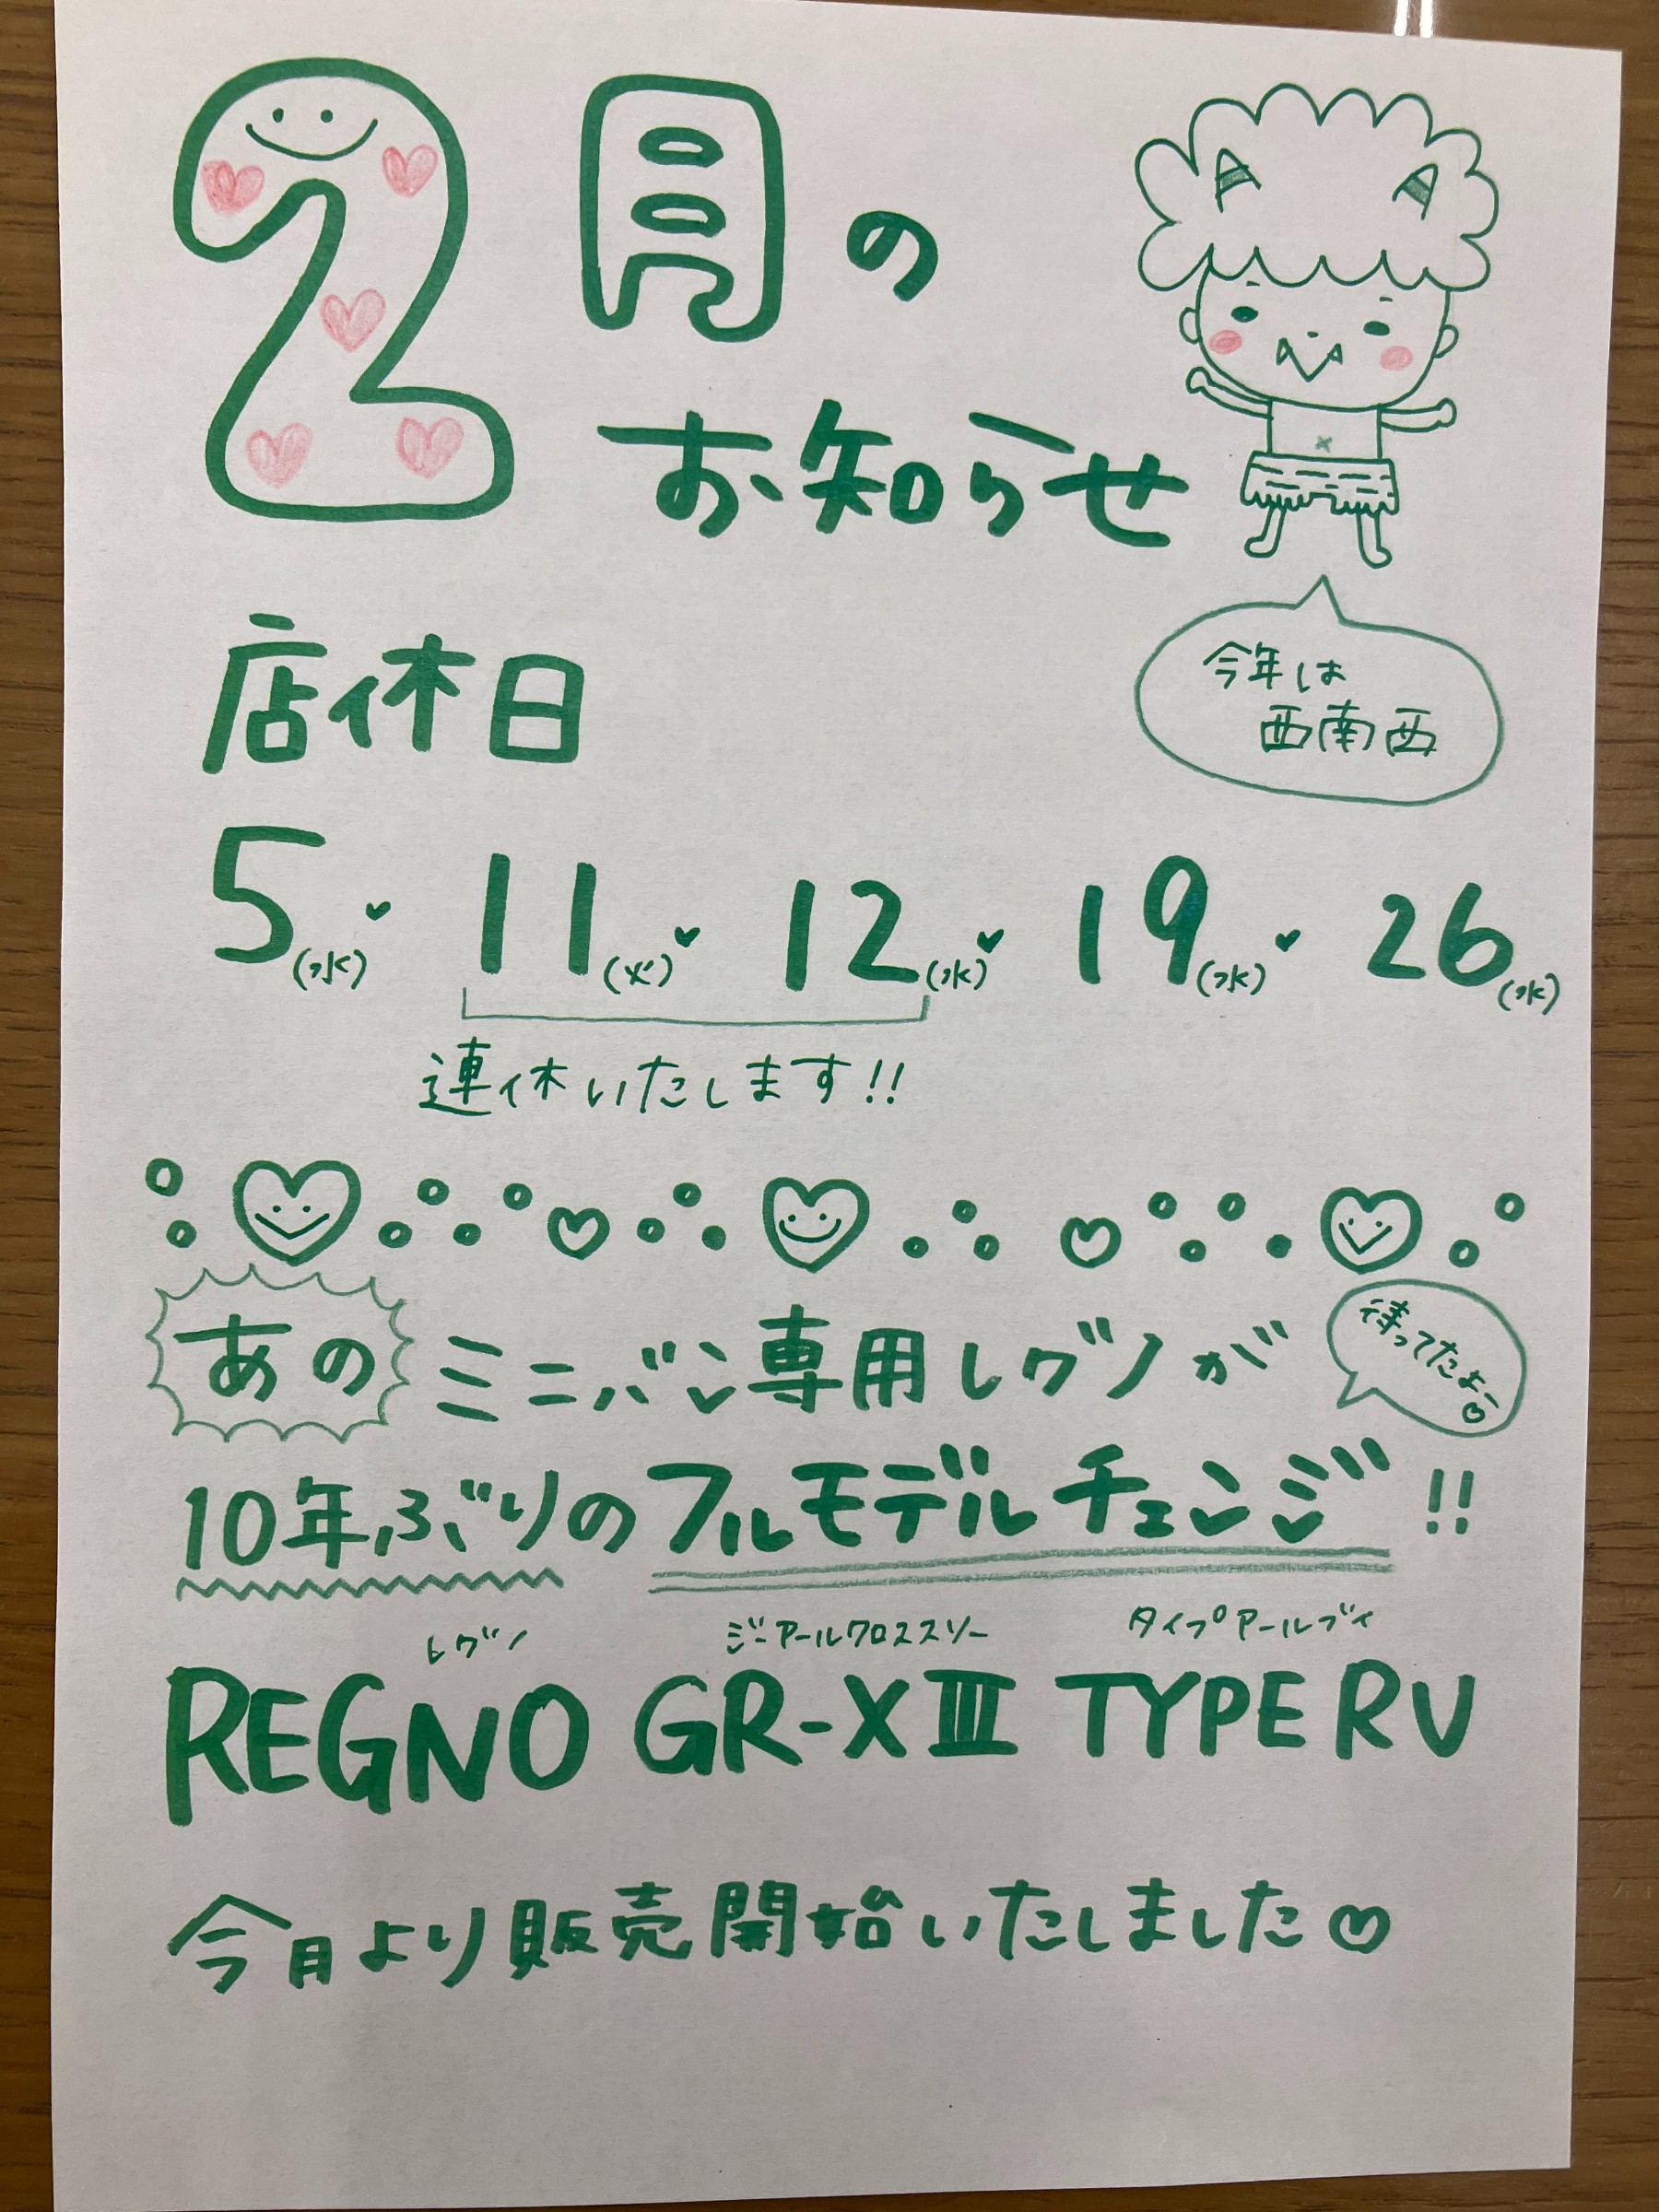 2月の
お知らせ
今年は
西南西
店休日
5(水) 11(火) 12(水) 19(水) 26(水)
連休いたします!!
あの ミニバン専用レグノが
待ってたよー
10年ぶりのフルモデルチェンジ!!
レグノ ジーアールクロススリー タイプアールブイ
REGNO GR-XⅢ TYPE RV
今月より販売開始いたしました♡